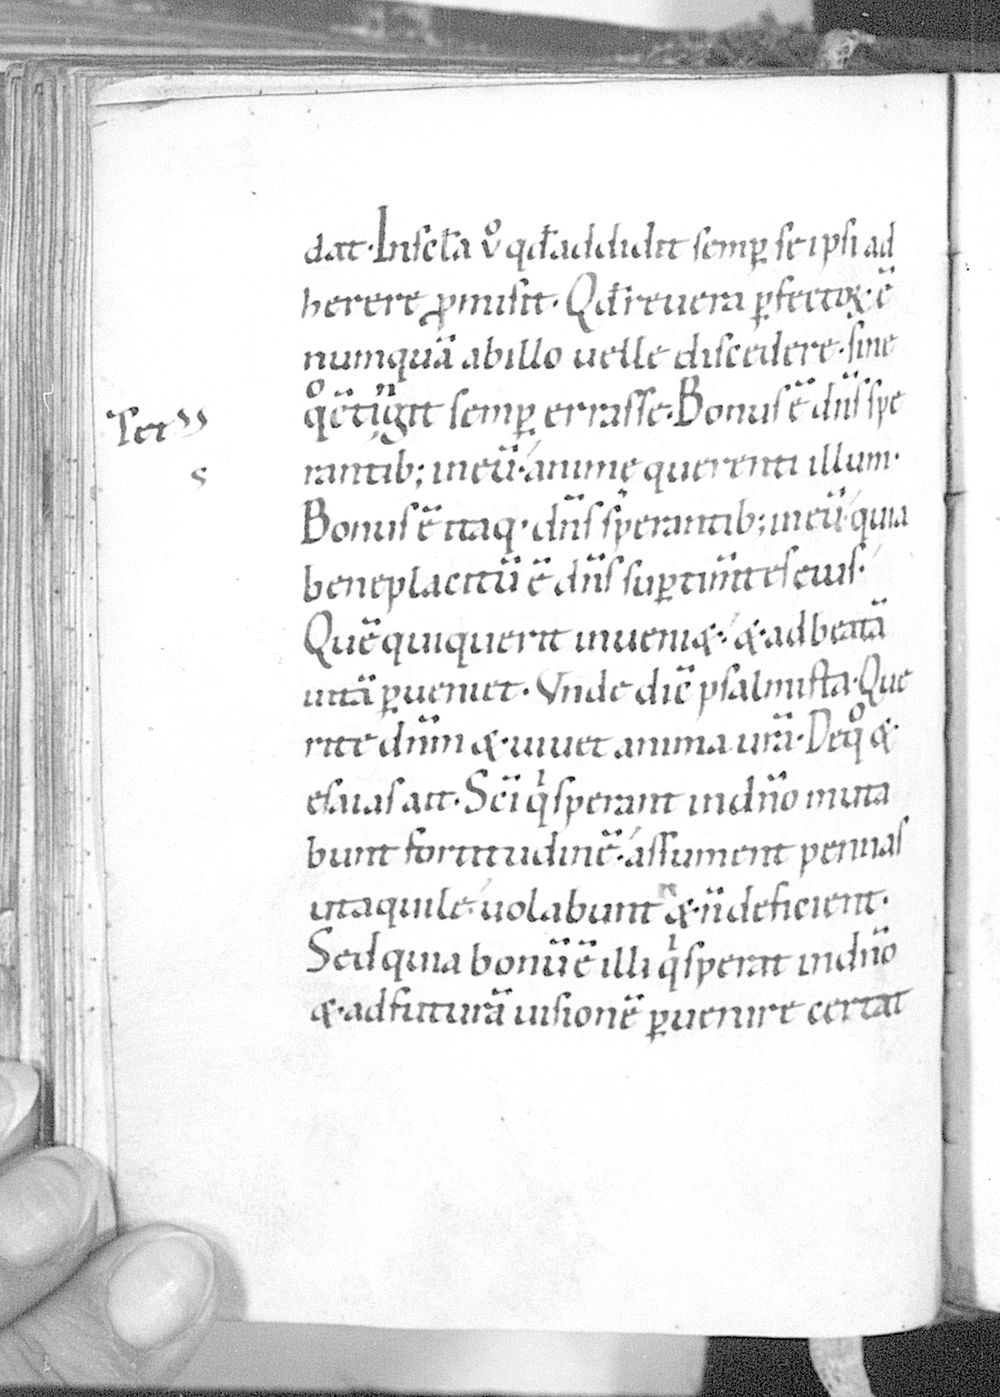 dat· Insct̄a v̊ qd̄ addidit semꝑ se ipsi ad
herere ꝓmisit· Qd̄ reuera ꝑfectoꝝ· ē
numquā ab illo uelle discedere· sine
qͦ ētīgit semꝑ errasse· Bonus ē dn̄s spe
Tet
rantib; in eū· anime querenti illum·
s
Bonus ē itaq· dn̄s sperantib; in eū· quia
beneplacitū ē dn̄s suꝑ tim̄tes eius·
Quē qui querit inueni&· &· ad beatā
uitā ꝑueniet· Vnde dic̄ psalmista· Que
rite dn̄m &· uiuet anima ur̄a· De qͦ &·
esaias ait· Sc̄i qⁱ sperant in dn̄o muta
bunt fortitudinē· assument pennas
ut aquile· uolabunt &· n̄ deficient·
Sed quia bonū ē illi qⁱ sperat in dn̄o
&· ad futurā uisionē ꝑuenire certat